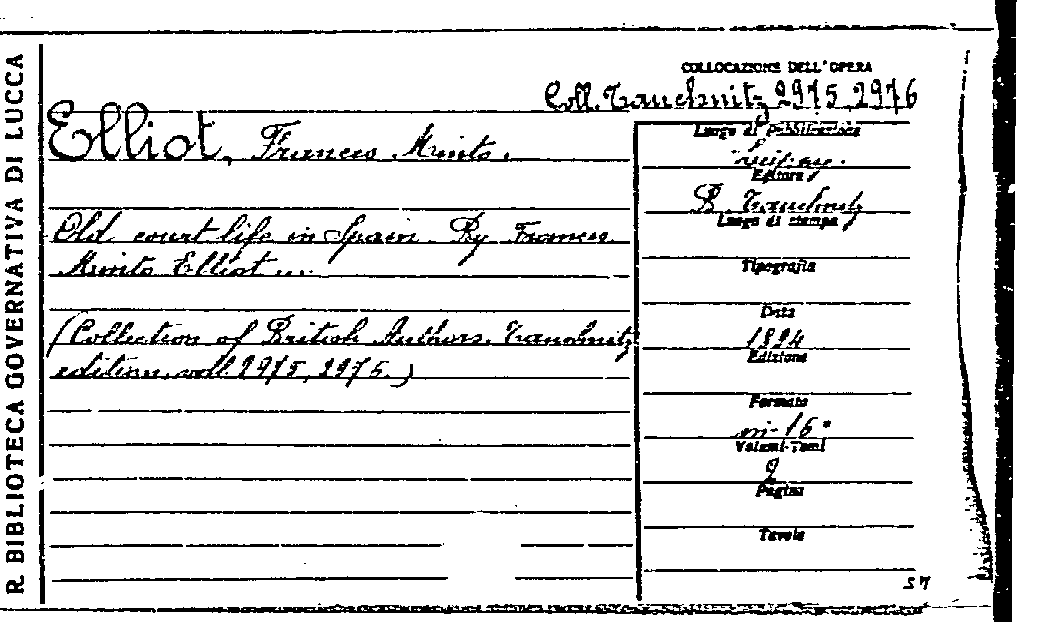 R. BIBLIOTECA GOVERNATIVA DI LUCCA
COLLOCAZIONE DELL'OPERA
Coll. Tauchnitz 2975, 2976
Elliot, Frances Minto.
Luogo di Pubblicazione
Leipzig.
Editore
B. Tauchnitz
Luogo di stampa
Old court life in Spain. By Frances
Minto Elliot...
Tipografia
Data
(Collection of British Authors. Tauchnitz
1894
Edizione
edition, voll. 2975, 2975.)
Formato
in-16°
Volumi-Tomi
2
Pagine
Tavole
57